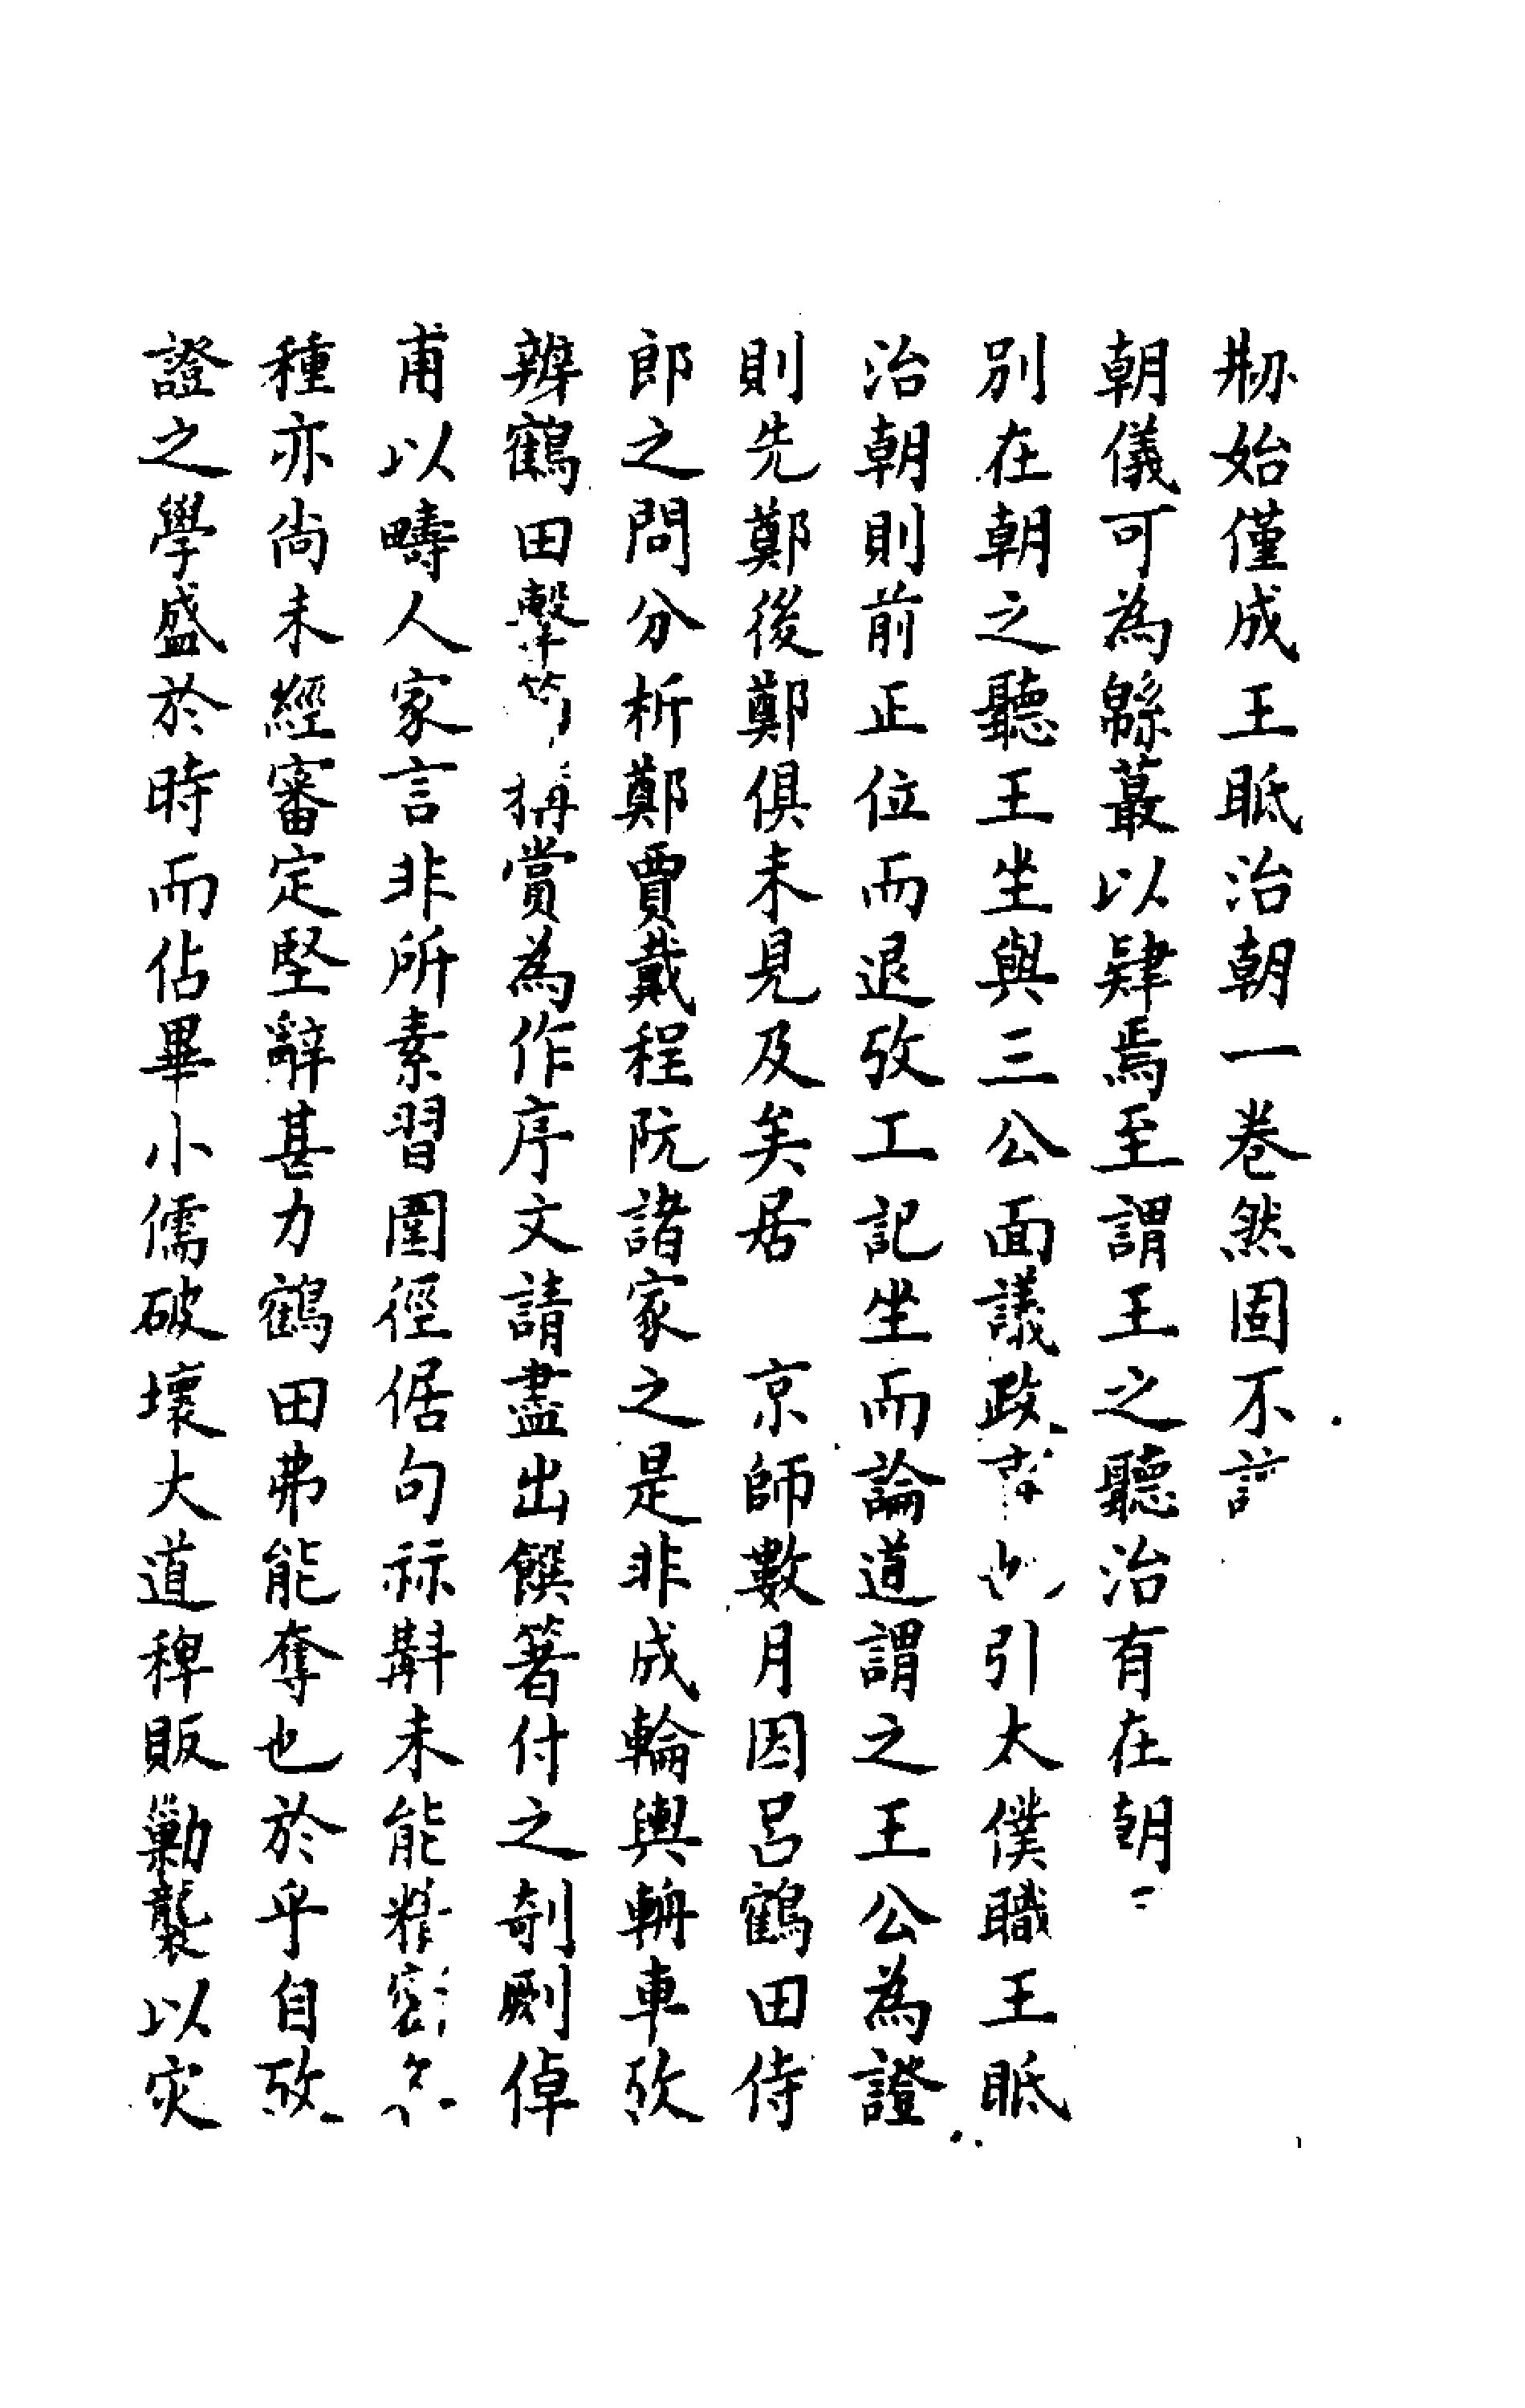 刱始僅成王眂治朝一卷然固不
朝儀可為緜蕞以肄焉至謂王之聽治有在朝
別在朝之聽王坐與三公面議政引太僕職王眂
治朝則前正位而退攷工記坐而論道謂之王公為證
則先鄭後鄭俱未見及矣居　京師數月因呂鶴田侍
郎之問分析鄭賈戴程阮諸家之是非成輪輿輈車攷
辨鶴田擊節稱賞為作序文請盡出饌箸付之剞劂倬
甫以疇人家言非所素習圍徑倨句祘斠未能精密
種亦尚未經審定堅辭甚力鶴田弗能奪也於乎自攷
證之學盛於時而佔畢小儒破壞大道稗販勦襲以灾